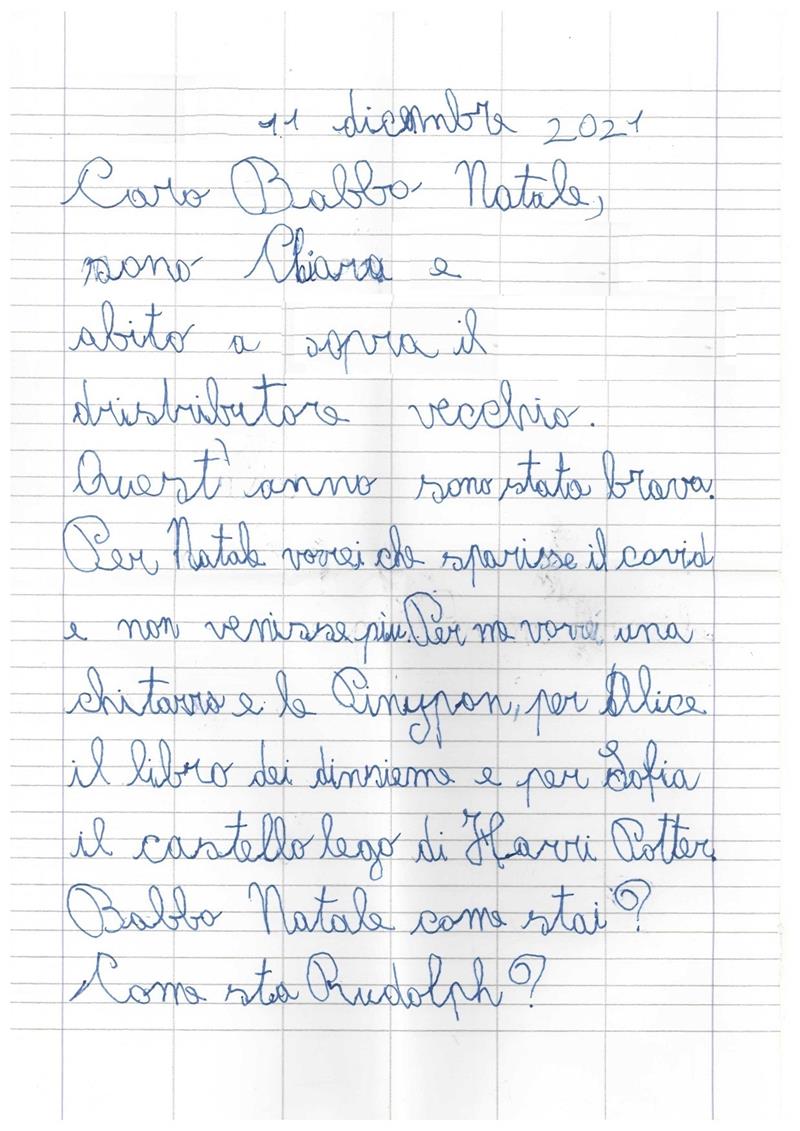 11 dicembre 2021
Caro Babbo Natale,
sono Chiara e
abito a sopra il
dristributore vecchio.
Quest' anno sono stata brava.
Per Natale vorrei che sparisse il covid
e non venisse piu. Per me vorrei una
chitarra e le Pinypon, per Alice
il libro dei dinnieme e per Sofia
il castello lego di Harri Potter.
Babbo Natale come stai?
Come sta Rudolph?